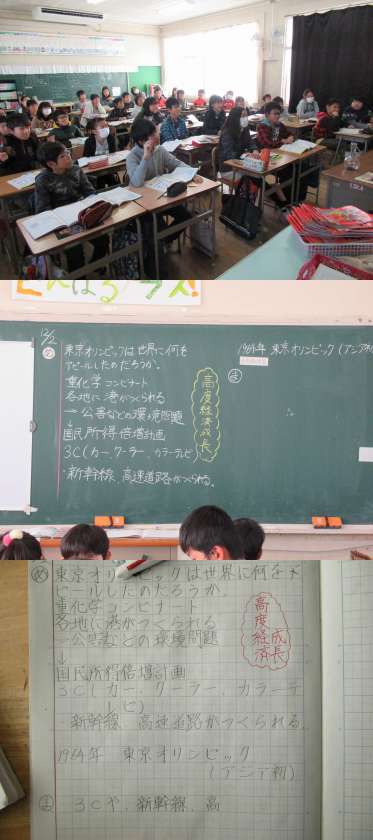 12/2
め
東京オリンピックは世界に何を
アピールしたのだろうか。
重化学コンビナート
各地に港がつくられる
→公害などの環境問題
↓
国民所得倍増計画
3C(カー、クーラー、カラーテレビ)
・新幹線、高速道路がつくられる。
高度経済成長
1964年 東京オリンピック(アジア初
ま
め
東京オリンピックは世界に何をア
ピールしたのだろうか。
重化学コンビナート
各地に港がつくられる
→公害などの環境問題
↓
国民所得倍増計画
3C(カー、クーラー、カラーテ
レビ)
・新幹線 高速道路がつくられる。
高度経済成長
1964年 東京オリンピック
(アジア初)
ま
3Cや、新幹線、高